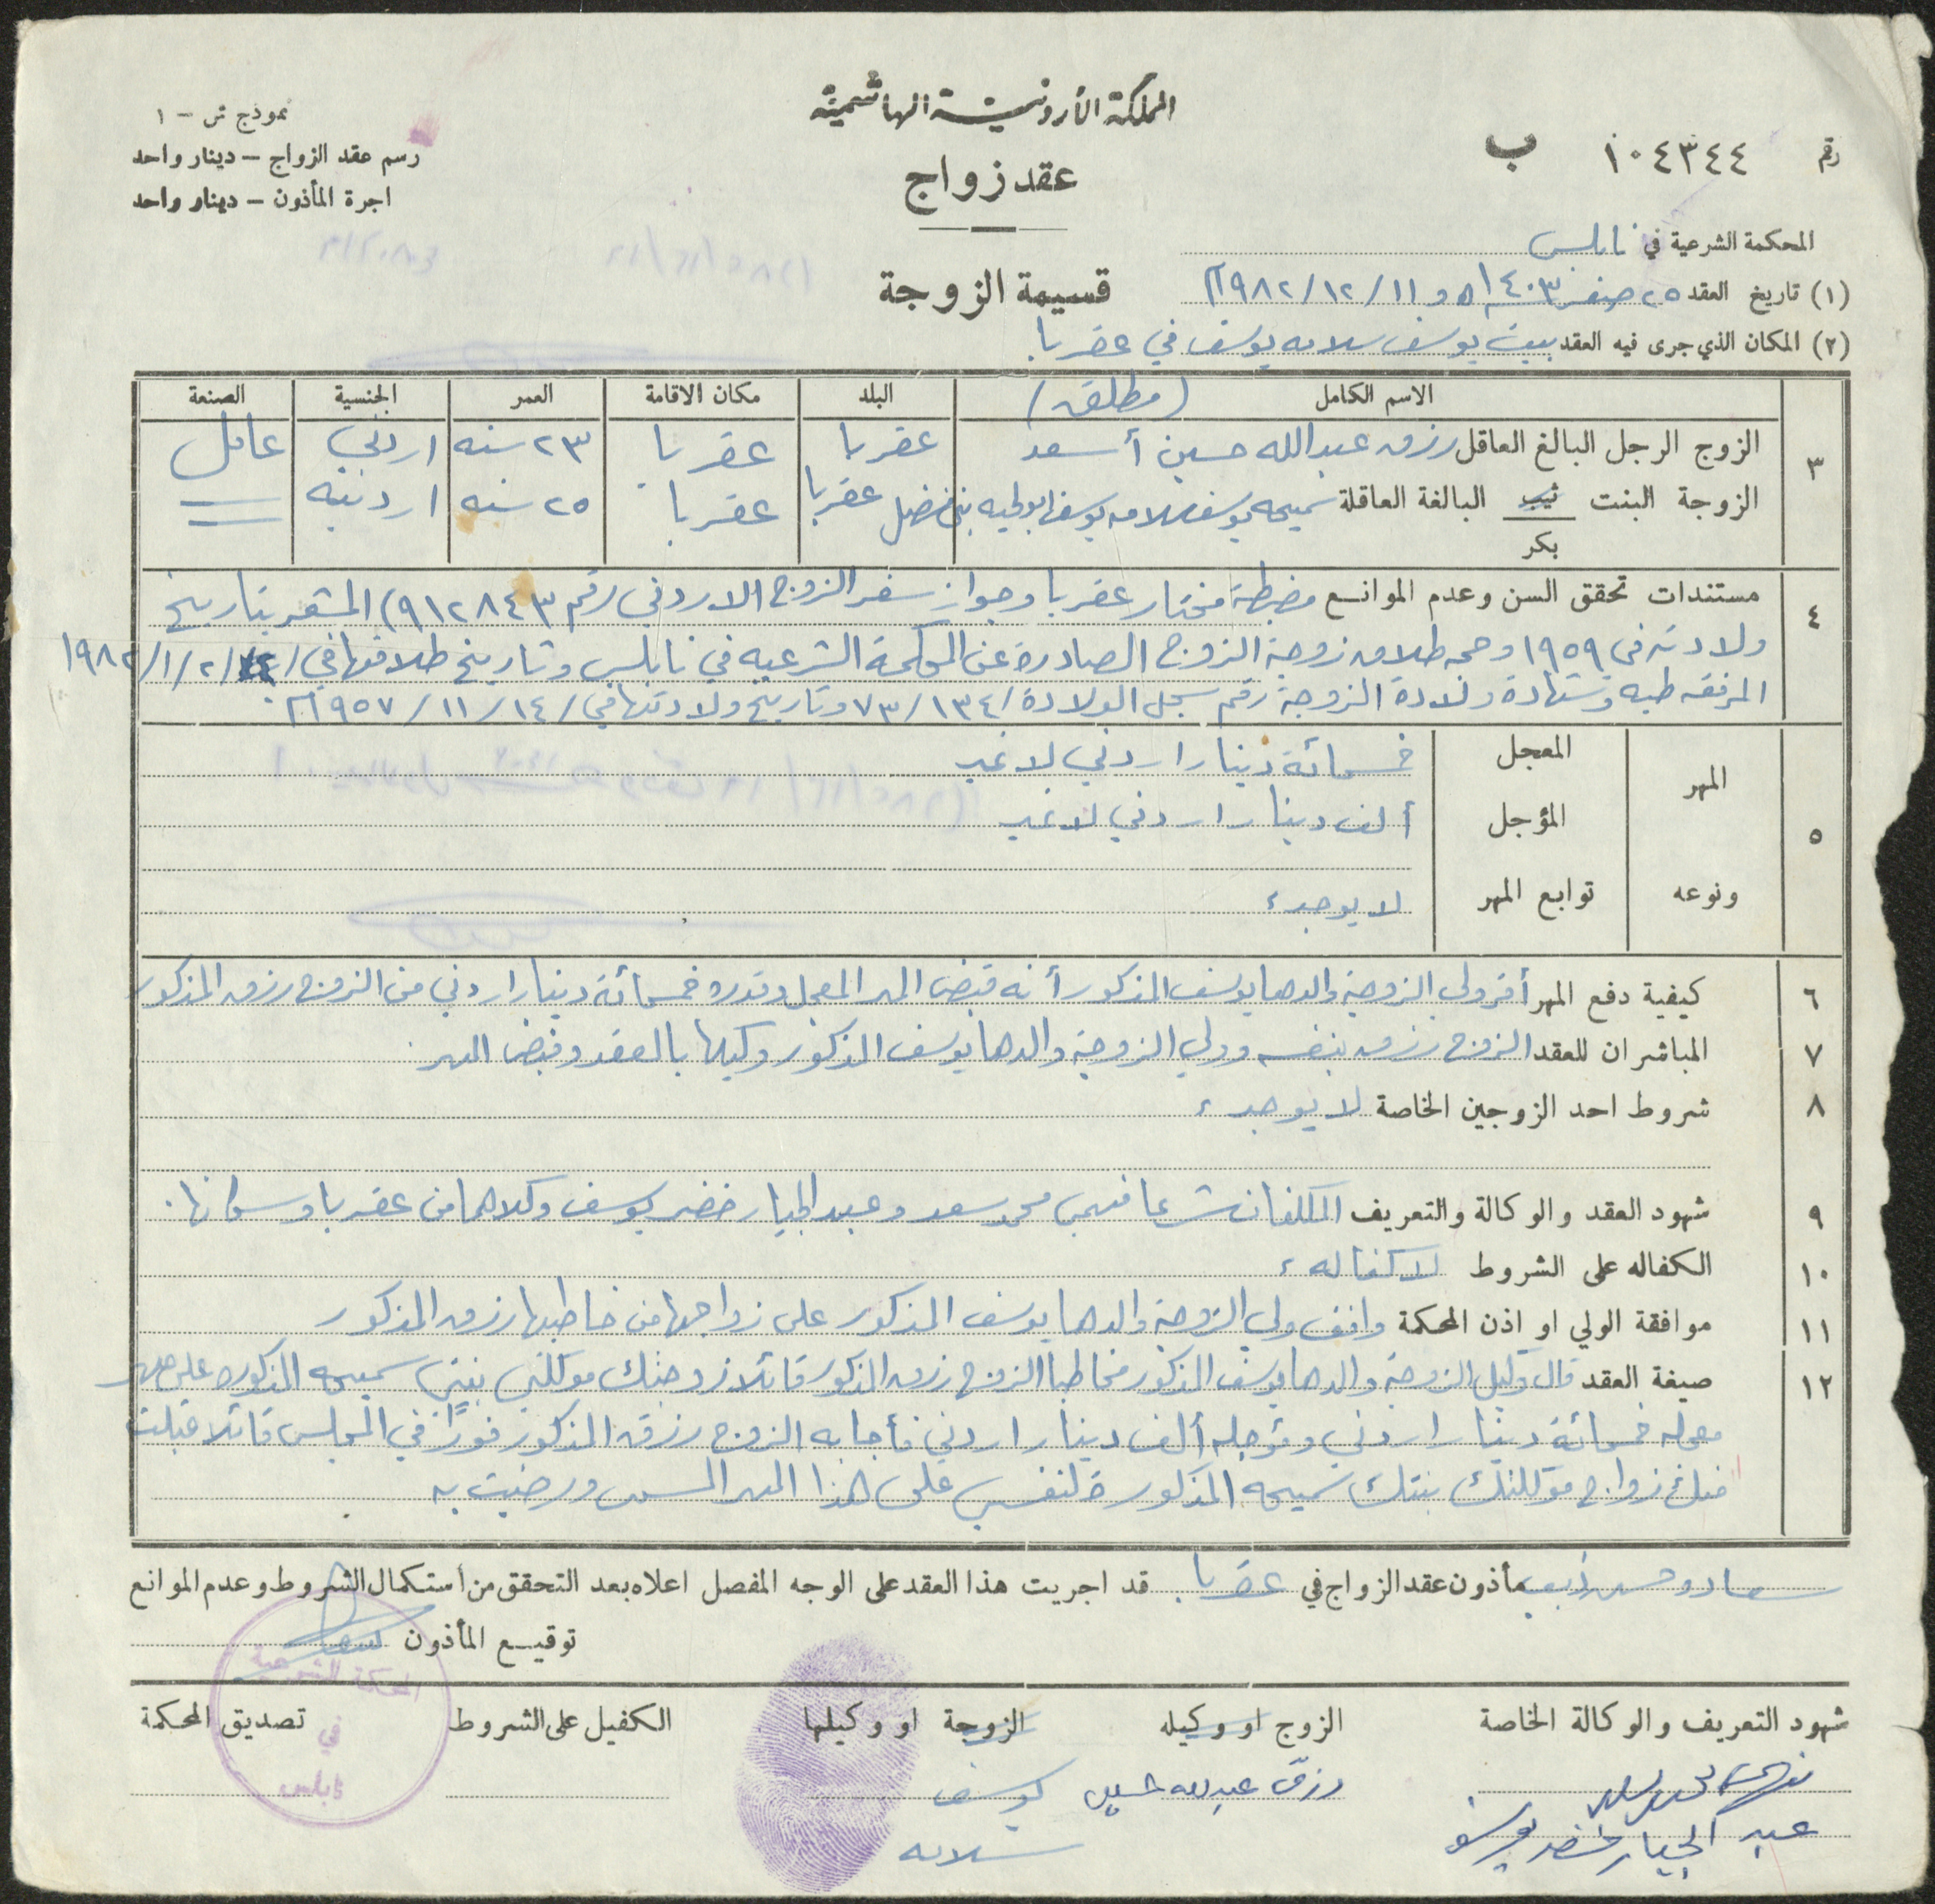 المملكة الأردنية الهاشمية
نموذج ش - ١
رقم ١٠٤٣٤٤ ب
رسم عقد الزواج - دينار واحد
عقد زواج
اجرة المأذون - دينار واحد
المحكمة الشرعية في نابلس
قسيمة الزوجة
(١) تاريخ العقد ٢٥ صفر ١٤٠٣ هـ و ١١/١٢/١٩٨٢م
(٢) المكان الذي جرى فيه العقد بيت يوسف سلامه يوسف في عقربا.
الاسم الكامل (مطلق) البلد مكان الاقامة العمر الجنسية الصنعة
٣
الزوج الرجل البالغ العاقل رزق عبدالله حسين أسعد عقربا عقربا ٢٣ سنه اردني عامل
الزوجة البنت ثيب البالغة العاقلة سميحه يوسف سلامه يوسف بني فضل عقربا عقربا ٢٥ سنه اردنيه =
بكر
٤ مستندات تحقق السن وعدم الموانع مضبطة مختار عقربا وجواز سفر الزوج الاردني رقم ٩١٢٨٤٣) المشعر بتاريخ
ولادته في ١٩٥٩ وحجه طلاق زوجة الزوج الصادرة عن المحكمة الشرعيه في نابلس وتاريخ طلاقها في / ٢/١/١٩٨٢
المرفقه طيه وشهادة ولادة الزوجة رقم سجل الولادة / ٧٣/١٣٤ وتاريخ ولادتها في / ١٤/١١/١٩٥٧م.
٥ المهر ونوعه
المعجل خمسمائة دينار اردني لا غير
المؤجل ألف دينار اردني لا غير
توابع المهر لا يوجد،
٦ كيفية دفع المهر أقر ولي الزوجة والدها يوسف المذكور أنه قبض المهر المعجل وقدره خمسمائة دينار اردني من الزوج رزق المذكور
٧ المباشران للعقد الزوج رزق بنفسه وولي الزوجة والدها يوسف المذكور وكيلها بالعقد وقبض المهر.
٨ شروط احد الزوجين الخاصة لا يوجد،
٩ شهود العقد والوكالة والتعريف المكلفان شرعا فهمي محمد سعد وعبد الجبار خضر يوسف وكلاهما من عقربا وسكانها.
١٠ الكفاله على الشروط لا كفاله،
١١ موافقة الولي او اذن المحكمة وافق ولي الزوجة والدها يوسف المذكور على زواجها من خاطبها رزق المذكور
١٢ صيغة العقد قال وكيل الزوجة والدها يوسف المذكور مخاطبا الزوج رزق المذكور قائلا زوجتك موكلتي بنتي سميحه المذكوره على مهر
معجله خمسمائة دينار اردني ومؤجله ألف دينار اردني فأجابه الزوج رزق المذكور فوراً في المجلس قائلا قبلت
منك زواج موكلتك بنتك سميحه المذكورة لنفسي على هذا المهر المسمى ورضيت به
مأذون عقد الزواج في عقربا. قد اجريت هذا العقد على الوجه المفصل اعلاه بعد التحقق من أستكمال الشروط وعدم الموانع
توقيع المأذون
شهود التعريف والوكالة الخاصة الزوج او وكيله الزوجة او وكيلها الكفيل على الشروط تصديق المحكمة
رزق عبدالله حسين يوسف
عبد الجبار خضر يوسف سلامه
المحكمة الشرعية
في
نابلس